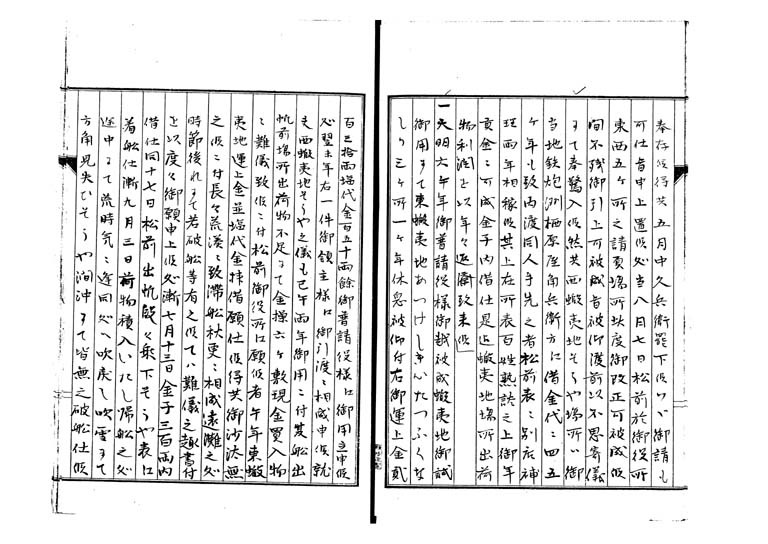 奉存候得共五月中久兵衛罷下候ハヽ御請も
可仕旨申上置候処当八月七日松前於御役所
東西五ヶ所之請負場所此度御改正可被成候
間不残御引上可被成旨被仰渡前以不思寄儀
ニて奉驚入候然共西蝦夷地そうや場所ハ御
当地鉄炮洲栖原屋角兵衛方ニ借金代ニ四五
ヶ年も致内渡同人手先之者松前表ニ別店補
理両年相稼候其上在所表百姓熟談之上御年
貢金ニ可成金子内借仕是迄蝦夷地場所出荷
物利潤を以年々返済致来候」
一天明六午年御普請役様御越被成蝦夷地御試
御用ニて東蝦夷地あつけしきいたつふくな
しり三ヶ所一ヶ年休息被仰付右御運上金弐
百三拾両場代金百五十両餘御普請役様ニ御用立申候
処翌未年右一件御領主様ニ御引渡ニ相成申候就
夫西蝦夷地そうや之儀も巳午両年御用ニ付其船出
帆前場所出荷物不足ニて金操六ヶ敷現金買入物
ニ難儀致候ニ付松前御役所ニ願候者午年東蝦
夷地運上金並場代金拝借願仕候得共御沙汰無
之候ニ付長々荒浜ニ致滞船秋更ニ相成遠灘之処
時節後れニて若破船等有之候てハ難儀之趣書付
を以度々御願申上候処漸七月十三日金子三百両内
借仕同十七日松前出帆段々乗下そうや表ニ
着船仕漸九月三日荷物積入いたし帰船之処
途中ニて荒時気ニ逢同処へ吹戻し吹雪ニて
方角見失ひそうや澗沖ニて皆無之破船仕候